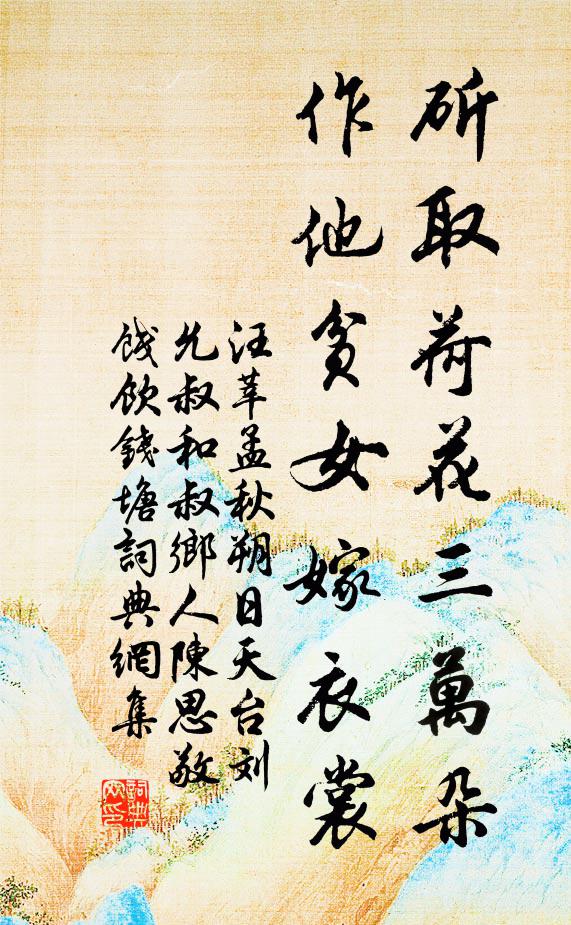 斫取荷花三萬朵
作他貧女嫁衣裳
汪莘孟秋朔日天台刘
允叔和叔鄉人陳思敬
餞飲錢塘詞典網集
詞典網印